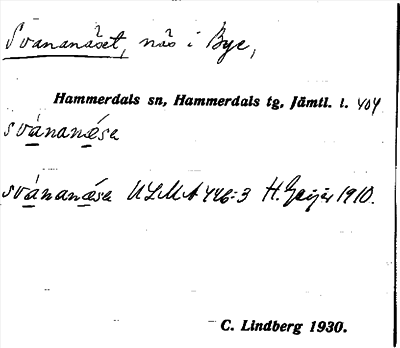 Svananäset, näs i Bye,
Hammerdals sn, Hammerdals tg, Jämtl. l. 404
svánanǽsa
svánanǽsa ULMA 446:3 H. Geijer 1910.
C. Lindberg 1930.